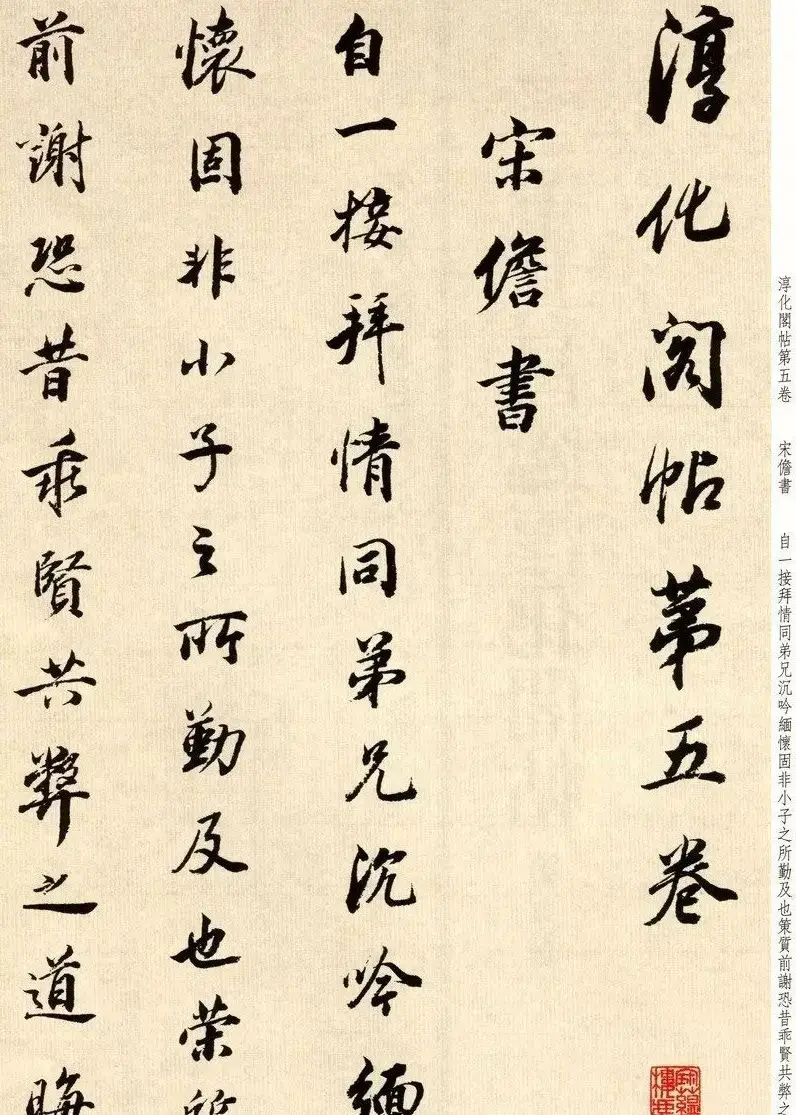 淳化阁帖第五卷
宋儋書
自一接拜情同弟兄沉吟緬
懷固非小子之所勤及也荣
前謝恐昔乖賢共弊之道晦
淳化閣帖第五卷 宋儋書 自一接拜情同弟兄沉吟緬懷固非小子之所勤及也策質前謝恐昔乖賢共弊之